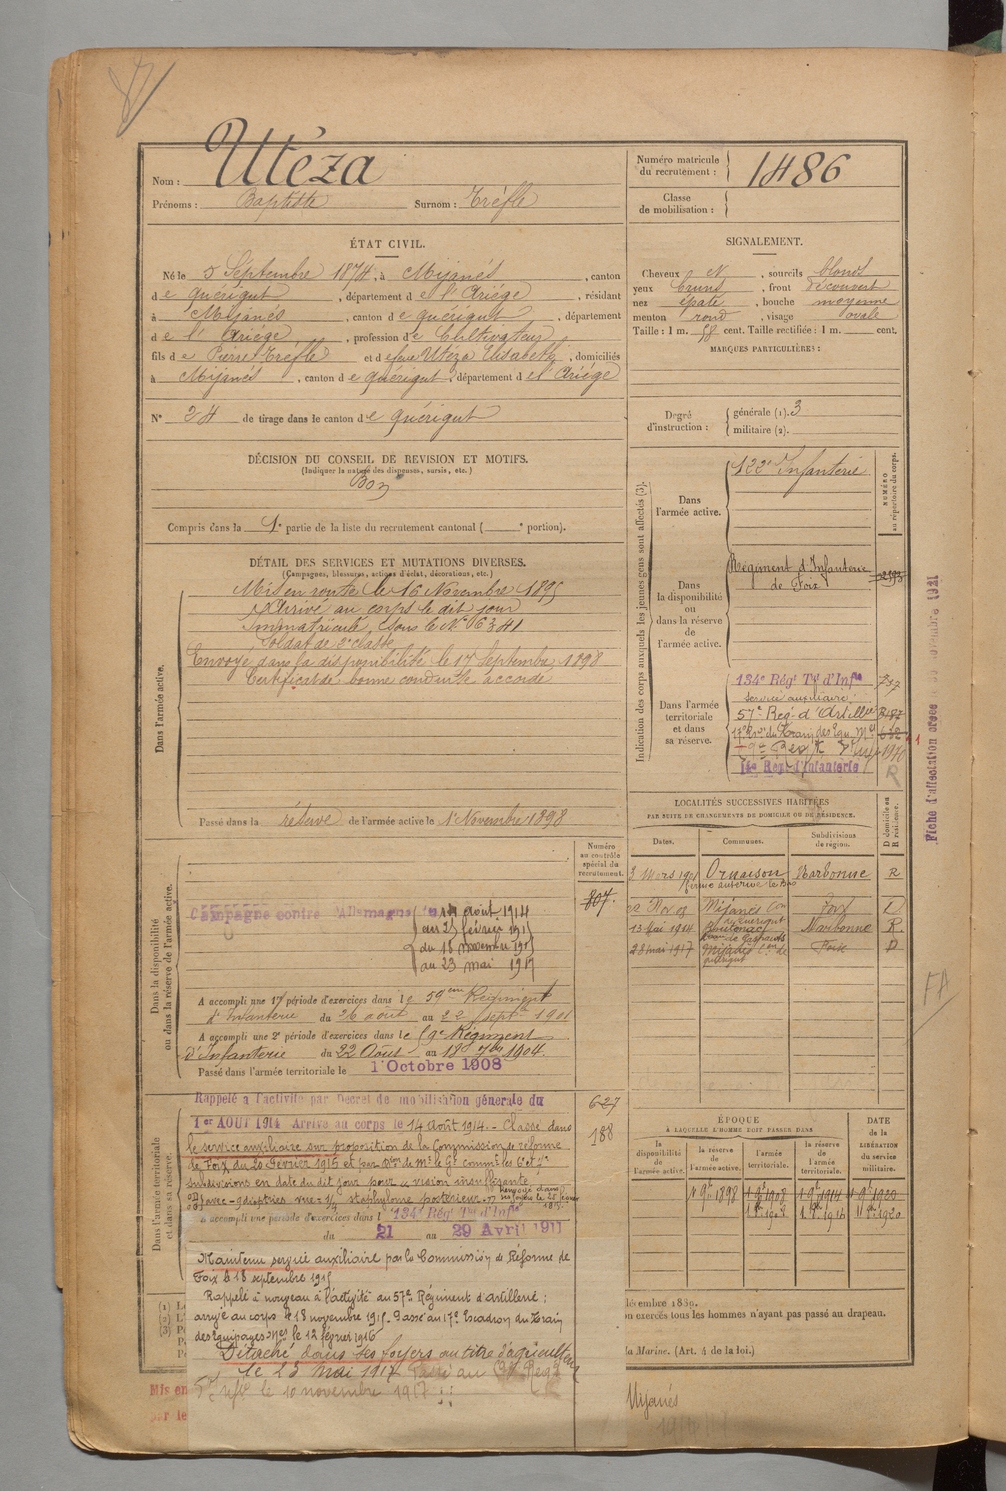 Nom : Utéza
Prénoms : Baptiste Surnom : Tréflé
Numéro matricule du recrutement : 1486
Classe de mobilisation :
ÉTAT CIVIL.
Né le 5 Septembre 1874, à Mijanés, canton
de Quérigut, département de l'Ariége, résidant
à Mijanés, canton de Quérigut, département
de l'Ariége, profession de Cultivateur
fils de Pierre Tréflé et de feue Utéza Elisabeth, domiciliés
à Mijanés, canton de Quérigut, département de l'Ariége
N° 24 de tirage dans le canton de Quérigut
SIGNALEMENT.
Cheveux, sourcils blonds
yeux bruns, front découvert
nez épaté, bouche moyenne
menton rond, visage ovale
Taille : 1 m. 58 cent. Taille rectifiée : 1 m. cent.
MARQUES PARTICULIÈRES :
Degré d'instruction : générale (1). 3
militaire (2).
DÉCISION DU CONSEIL DE REVISION ET MOTIFS.
(Indiquer la nature des dispenses, sursis, etc.)
Bon
Compris dans la 1e partie de la liste du recrutement cantonal ( e portion).
DÉTAIL DES SERVICES ET MUTATIONS DIVERSES.
(Campagnes, blessures, actions d'éclat, décorations, etc.)
Dans l'armée active.
Mis en route le 16 Novembre 1895
Arrivé au corps le dit jour
Immatriculé sous le N° 6341
Soldat de 2e classe
Envoyé dans la disponibilité le 17 Septembre 1898
Certificat de bonne conduite accordé
Passé dans la réserve de l'armée active le 1er Novembre 1898
Indication des corps auxquels les jeunes gens sont affectés (3).
NUMÉRO au répertoire du corps.
Dans l'armée active.
122e Infanterie
Dans la disponibilité ou dans la réserve de l'armée active.
Régiment d'Infanterie
de Foix
Dans l'armée territoriale et dans sa réserve.
134e Régt Tal d'Infie
service auxiliaire
57e Reg. d'Artillie
14e Regt d'Infanterie
R
Fiche d'affectation
LOCALITÉS SUCCESSIVES HABITÉES
PAR SUITE DE CHANGEMENTS DE DOMICILE OU DE RÉSIDENCE.
Dates. Communes. Subdivisions de région. D domicile ou R résidence.
3 Mars 1901 Ornaison Narbonne R
22 Nov 02 Mijanés Foix D
13 Mai 1904 Narbonne R.
28 mai 1917 Mijanés Con de Quérigut Foix D
FA
Dans la disponibilité ou dans la réserve de l'armée active.
Numéro au contrôle spécial du recrutement.
807.
Campagne contre l'Allemagne du 14 août 1914
au 25 février 1915
du 18 novembre 1915
au 23 mai 1917
A accompli une 1re période d'exercices dans le 59eme Régiment
d'Infanterie du 26 août au 22 Septbre 1901
A accompli une 2e période d'exercices dans le 59e Régiment
d'Infanterie du 22 Août au 18 7bre 1904.
Passé dans l'armée territoriale le 1er Octobre 1908
Dans l'armée territoriale et dans sa réserve.
627
188
Rappelé à l'activité par Décret de mobilisation générale du
1er AOUT 1914 Arrivé au corps le 14 août 1914. - Classé dans
le service auxiliaire sur proposition de la Commission de réforme
de Foix du 20 février 1915 et par Don de Mr le Gal commt les 6e et 7e
subdivisions en date du dit jour pour vision insuffisante
staphylome postérieur
A accompli une période d'exercices dans le 134e Régt Tal d'Infie
du 21 au 29 Avril 1911
Maintenu service auxiliaire par la Commission de Réforme de
Foix le 18 septembre 1915
Rappelé à nouveau à l'activité au 57e Régiment d'artillerie :
arrivé au corps le 18 novembre 1915. Passé au 17e Escadron du Train
des Equipages Mres le 12 février 1916
Détaché dans ses foyers au titre d'agriculteur
le 23 mai 1917 Passé au
le 10 novembre 1917
ÉPOQUE
À LAQUELLE L'HOMME DOIT PASSER DANS
la disponibilité de l'armée active. la réserve de l'armée active. l'armée territoriale. la réserve de l'armée territoriale.
DATE de la LIBÉRATION du service militaire.
1er 9bre 1898
décembre 1889.
on exercés tous les hommes n'ayant pas passé au drapeau.
la Marine. (Art. 4 de la loi.)
Mis en
par le
Mijanés